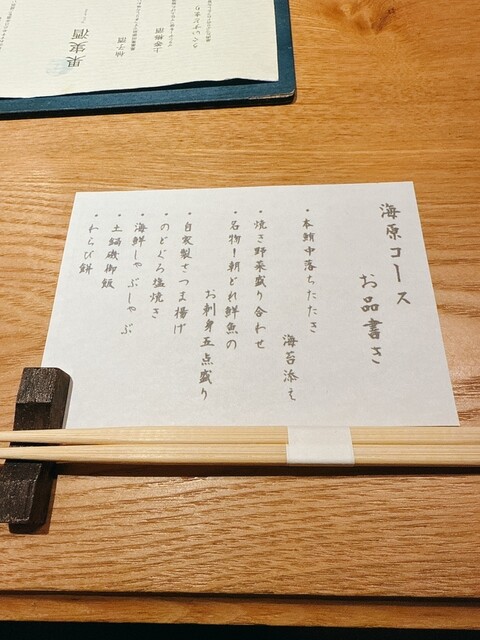 海原コース
お品書き
・本鮪中落ちたたき
海苔添え
・焼き野菜盛り合わせ
・名物!朝どれ鮮魚の
お刺身五点盛り
・自家製さつま揚げ
・のどぐろ塩焼き
・海鮮しゃぶしゃぶ
・土鍋磯御飯
・わらび餅
果実酒
柚子酒
上等梅酒
うぐいすとまり